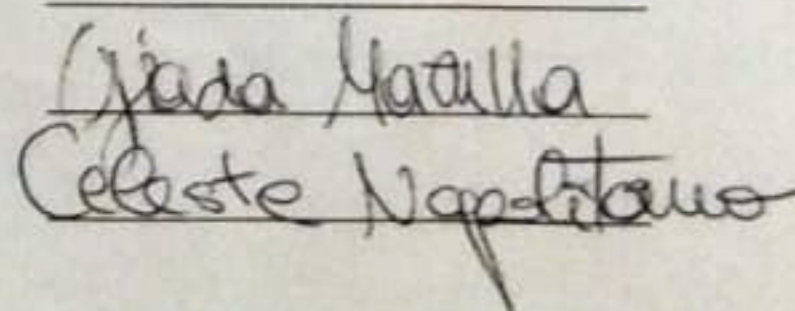 Giada Matilla
Celeste Napolitano